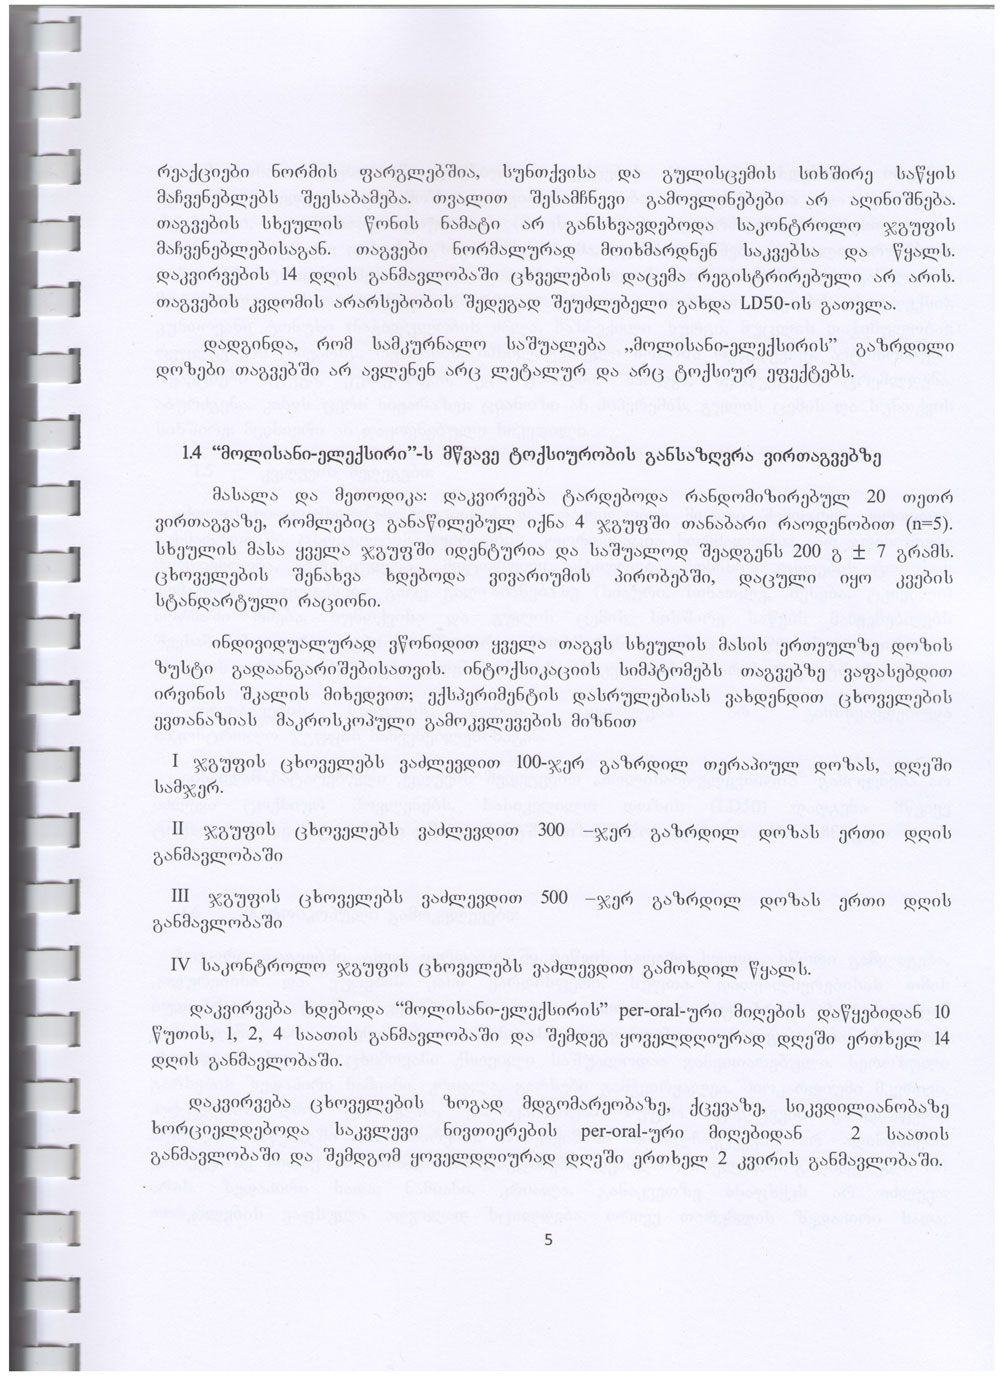 რეაქციები ნორმის ფარგლებშია, სუნთქვისა და გულისცემის სიხშირე საწყის
მაჩვენებლებს შეესაბამება. თვალით შესამჩნევი გამოვლინებები არ აღინიშნება.
თაგვების სხეულის წონის ნამატი არ განსხვავდებოდა საკონტროლო ჯგუფის
მაჩვენებლებისაგან. თაგვები ნორმალურად მოიხმარდნენ საკვებსა და წყალს.
დაკვირვების 14 დღის განმავლობაში ცხველების დაცემა რეგისტრირებული არ არის.
თაგვების კვდომის არარსებობის შედეგად შეუძლებელი გახდა LD50-ის გათვლა.
დადგინდა, რომ სამკურნალო საშუალება „მოლისანი-ელექსირის” გაზრდილი
დოზები თაგვებში არ ავლენენ არც ლეტალურ და არც ტოქსიურ ეფექტებს.
1.4 “მოლისანი-ელექსირი”-ს მწვავე ტოქსიურობის განსაზღვრა ვირთაგვებზე
მასალა და მეთოდიკა: დაკვირვება ტარდებოდა რანდომიზირებულ 20 თეთრ
ვირთაგვაზე, რომლებიც განაწილებულ იქნა 4 ჯგუფში თანაბარი რაოდენობით (n=5).
სხეულის მასა ყველა ჯგუფში იდენტურია და საშუალოდ შეადგენს 200 გ ± 7 გრამს.
ცხოველების შენახვა ხდებოდა ვივარიუმის პირობებში, დაცული იყო კვების
სტანდარტული რაციონი.
ინდივიდუალურად ვწონიდით ყველა თაგვს სხეულის მასის ერთეულზე დოზის
ზუსტი გადაანგარიშებისათვის. ინტოქსიკაციის სიმპტომებს თაგვებზე ვაფასებდით
ირვინის შკალის მიხედვით; ექსპერიმენტის დასრულებისას ვახდენდით ცხოველების
ევთანაზიას მაკროსკოპული გამოკვლევების მიზნით
I ჯგუფის ცხოველებს ვაძლევდით 100-ჯერ გაზრდილ თერაპიულ დოზას, დღეში
სამჯერ.
II ჯგუფის ცხოველებს ვაძლევდით 300 –ჯერ გაზრდილ დოზას ერთი დღის
განმავლობაში
III ჯგუფის ცხოველებს ვაძლევდით 500 –ჯერ გაზრდილ დოზას ერთი დღის
განმავლობაში
IV საკონტროლო ჯგუფის ცხოველებს ვაძლევდით გამოხდილ წყალს.
დაკვირვება ხდებოდა “მოლისანი-ელექსირის” per-oral-ური მიღების დაწყებიდან 10
წუთის, 1, 2, 4 საათის განმავლობაში და შემდეგ ყოველდღიურად დღეში ერთხელ 14
დღის განმავლობაში.
დაკვირვება ცხოველების ზოგად მდგომარეობაზე, ქცევაზე, სიკვდილიანობაზე
ხორციელდებოდა საკვლევი ნივთიერების per-oral-ური მიღებიდან 2 საათის
განმავლობაში და შემდგომ ყოველდღიურად დღეში ერთხელ 2 კვირის განმავლობაში.
5